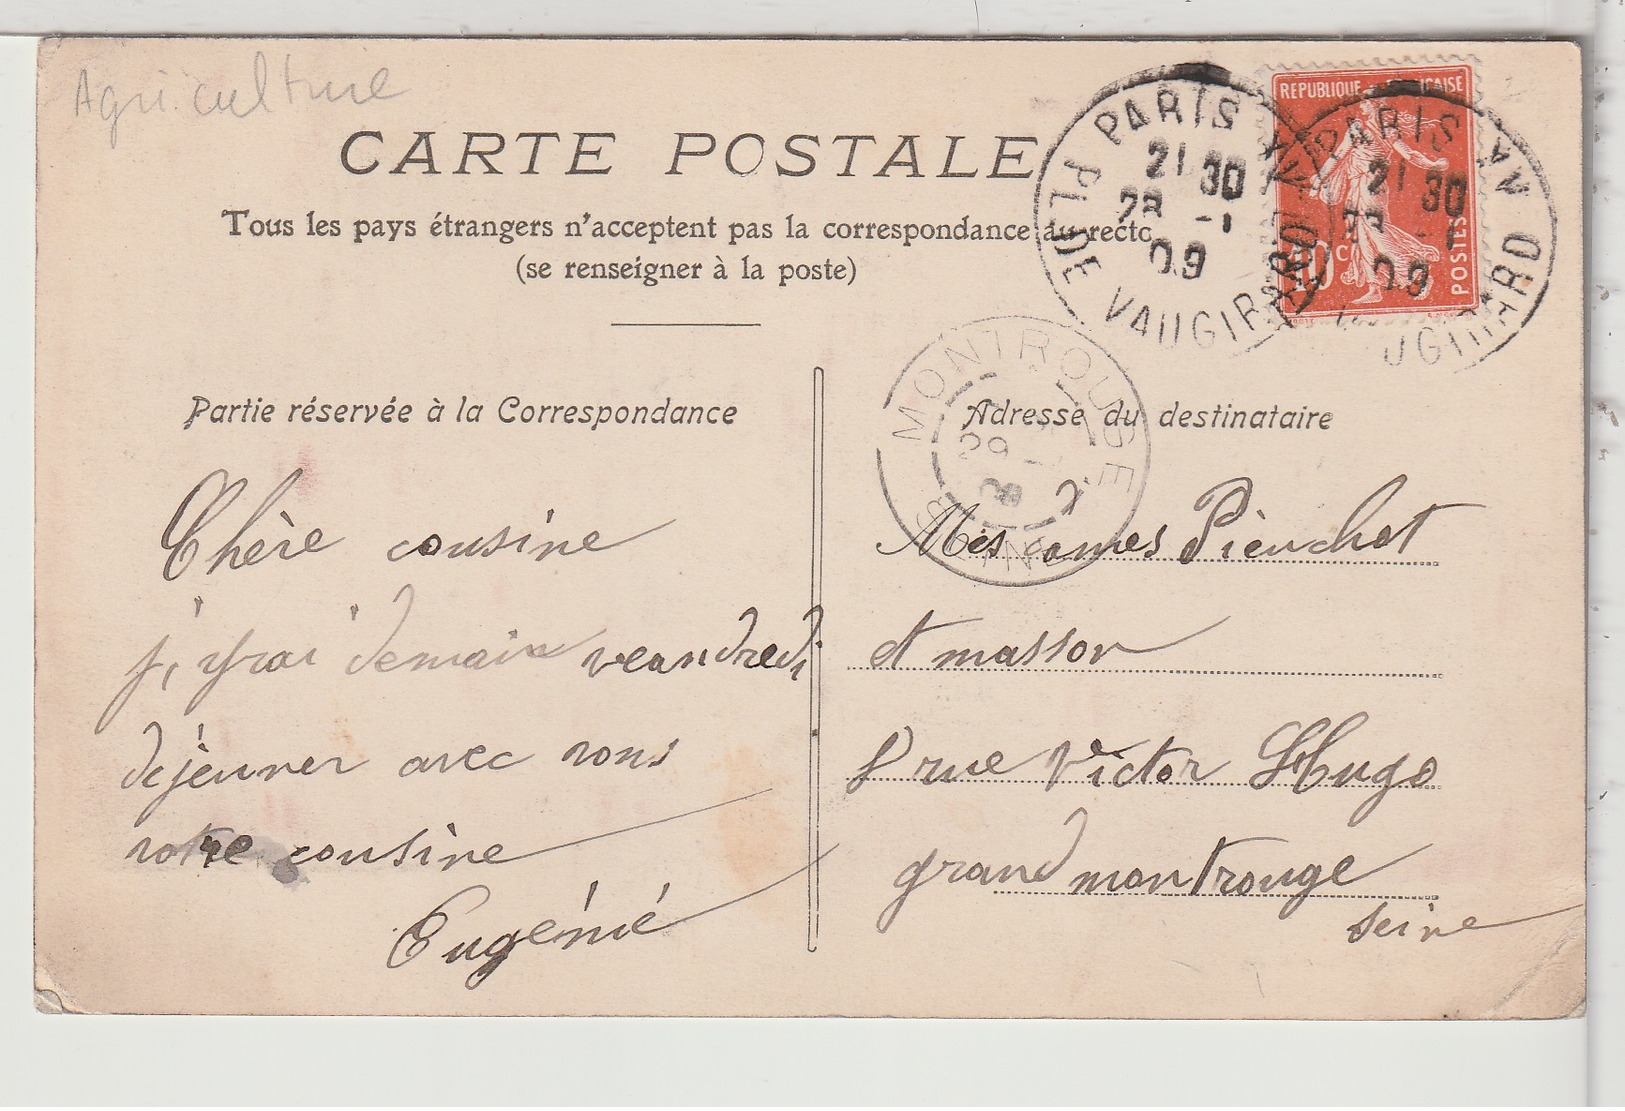 Agriculture
CARTE POSTALE
Tous les pays étrangers n'acceptent pas la correspondance au recto
(se renseigner à la poste)
PARIS
21 30
28 -1
09
PL. DE VAUGIRARD
REPUBLIQUE FRANÇAISE
10 c
POSTES
PARIS
21 30
28 -1
09
VAUGIRARD
MONTROUGE
29
SEINE
Partie réservée à la Correspondance
Chère cousine
j, irai demain veandredi
dejéuner avec vous
votre cousine
Eugénie
Adresse du destinataire
Mesdames Pienchot
et masson
rue Victor Hugo
grand montrouge
seine